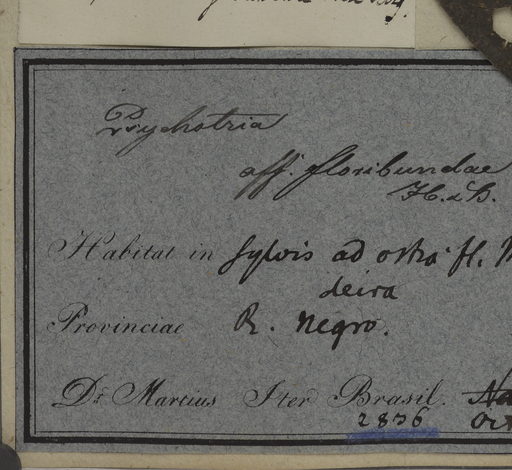 Psychotria
aff. floribundae
H. & B.
Habitat in sylvis ad ostia fl. M
deira
Provinciae R. negro.
Dr. Martius Iter Brasil. Na
2836 Oct